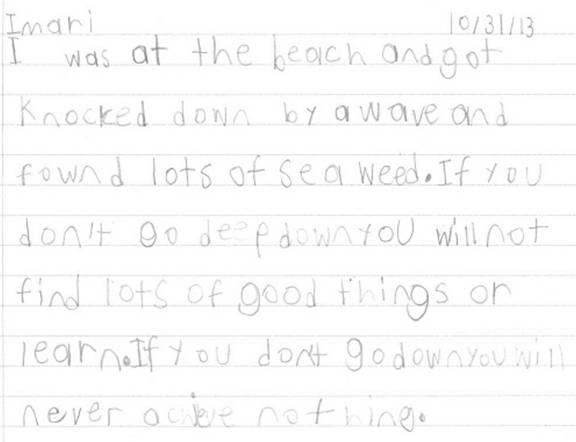 Imari 10/31/13
I was at the beach and got
knocked down by a wave and
fownd lots of sea weed. If you
don't go deep down you will not
find lots of good things or
learn. If you dont go down you will
never achive nothing.